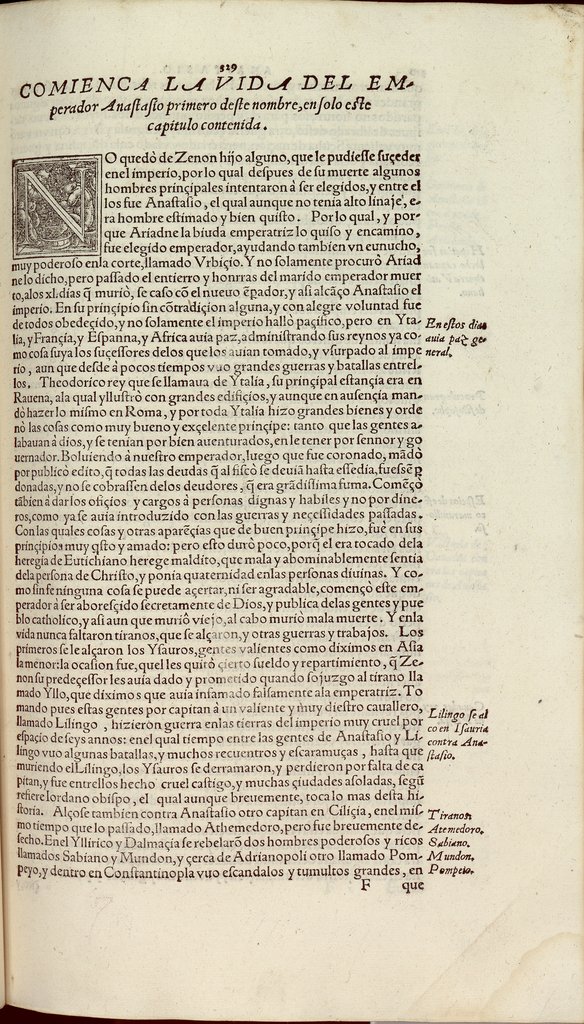 329
COMIENCA LA VIDA DEL EM-
perador Anastasio primero deste nombre, en solo este
capitulo contenida.
NO quedò de Zenon hijo alguno, que le pudiesse suçeder
enel imperio, por lo qual despues de su muerte algunos
hombres prinçipales intentaron à ser elegidos, y entre el
los fue Anastasio, el qual aunque no tenia alto linaje, e-
ra hombre estimado y bien quisto. Por lo qual, y por-
que Ariadne la biuda emperatriz lo quiso y encamino,
fue elegido emperador, ayudando tambien vn eunucho,
muy poderoso en la corte, llamado Vrbiçio. Y no solamente procurò Ariad
ne lo dicho, pero passado el entierro y honrras del marido emperador muer
to, alos xl. dias q̃ muriò, se caso cõ el nueuo ẽpador, y asi alcãço Anastasio el
imperio. En su prinçipio sin cõtradiçion alguna, y con alegre voluntad fue
de todos obedeçido, y no solamente el imperio hallò paçifico, pero en Yta-
lia, y Françia, y Espanna, y Africa auia paz, administrando sus reynos ya co-
mo cosa suya los suçessores delos que los auian tomado, y vsurpado al impe
rio, aun que desde à pocos tiempos vuo grandes guerras y batallas entrel-
los. Theodorico rey que se llamaua de Ytalia, su prinçipal estançia era en
Rauena, ala qual yllustrò con grandes edifiçios, y aunque en ausençia man-
dò hazer lo mismo en Roma, y por toda Ytalia hizo grandes bienes y orde
nò las cosas como muy bueno y exçelente prinçipe: tanto que las gentes a-
labauan à dios, y se tenian por bien auenturados, en le tener por sennor y go
uernador. Boluiendo à nuestro emperador, luego que fue coronado, mãdò
por publicò edito, q̃ todas las deudas q̃ al fiscò se deuiã hasta esse dia, fuessẽ p
donadas, y no se cobrassen delos deudores, q̃ era grãdissima suma. Començò
tãbien à dar los ofiçios y cargos à personas dignas y habiles y no por dine-
ros, como ya se auia introduzido con las guerras y neçessidades passadas.
Con las quales cosas y otras apareçias que de buen prinçipe hizo, fuè en sus
prinçipios muy qsto y amado: pero esto durò poco, porq̃ el era tocado dela
heregia de Eutichiano herege maldito, que mala y abominablemente sentia
dela persona de Christo, y ponia quaternidad enlas personas diuinas. Y co-
mo sin fe ninguna cosa se puede açertar, ni ser agradable, començò este em-
perador à ser aboresçido secretamente de Dios, y publica delas gentes y pue
blo catholico, y asi aun que murio viejo, al cabo murio mala muerte. Y enla
vida nunca faltaron tiranos, que se alçaron, y otras guerras y trabajos. Los
primeros se le alçaron los Ysauros, gentes valientes como diximos en Asia
la menor: la ocasion fue, quel les quitò çierto sueldo y repartimiento, q̃ Ze-
non su predeçessor les auia dado y prometido quando sojuzgo al tirano lla
mado Yllo, que diximos que auia infamado falsamente ala emperatriz. To
mando pues estas gentes por capitan à vn valiente y muy diestro cauallero,
llamado Lilingo, hizieron guerra enlas tierras del imperio muy cruel por
espaçio de seys annos: enel qual tiempo entre las gentes de Anastasio y Li-
lingo vuo algunas batallas, y muchos recuentros y escaramuças, hasta que
muriendo el Lilingo, los Ysauros se derramaron, y perdieron por falta de ca
pitan, y fue entrellos hecho cruel castigo, y muchas çiudades asoladas, segũ
refiere Iordano obispo, el qual aunque breuemente, toca lo mas desta hi-
storia. Alçose tambien contra Anastasio otro capitan en Ciliçia, enel mis-
mo tiempo que lo passado, llamado Athemedoro, pero fue breuemente de-
secho. Enel Yllirico y Dalmaçia se rebelarõ dos hombres poderosos y ricos
llamados Sabiano y Mundon, y çerca de Adrianopoli otro llamado Pom-
peyo, y dentro en Constantinopla vuo escandalos y tumultos grandes, en
F que
En estos dias
auia paz ge-
neral.
Lilingo se al
co en Isauria
contra Ana-
stasio.
Tiranos
Atemedoro.
Sabiano.
Mundon.
Pompeio.